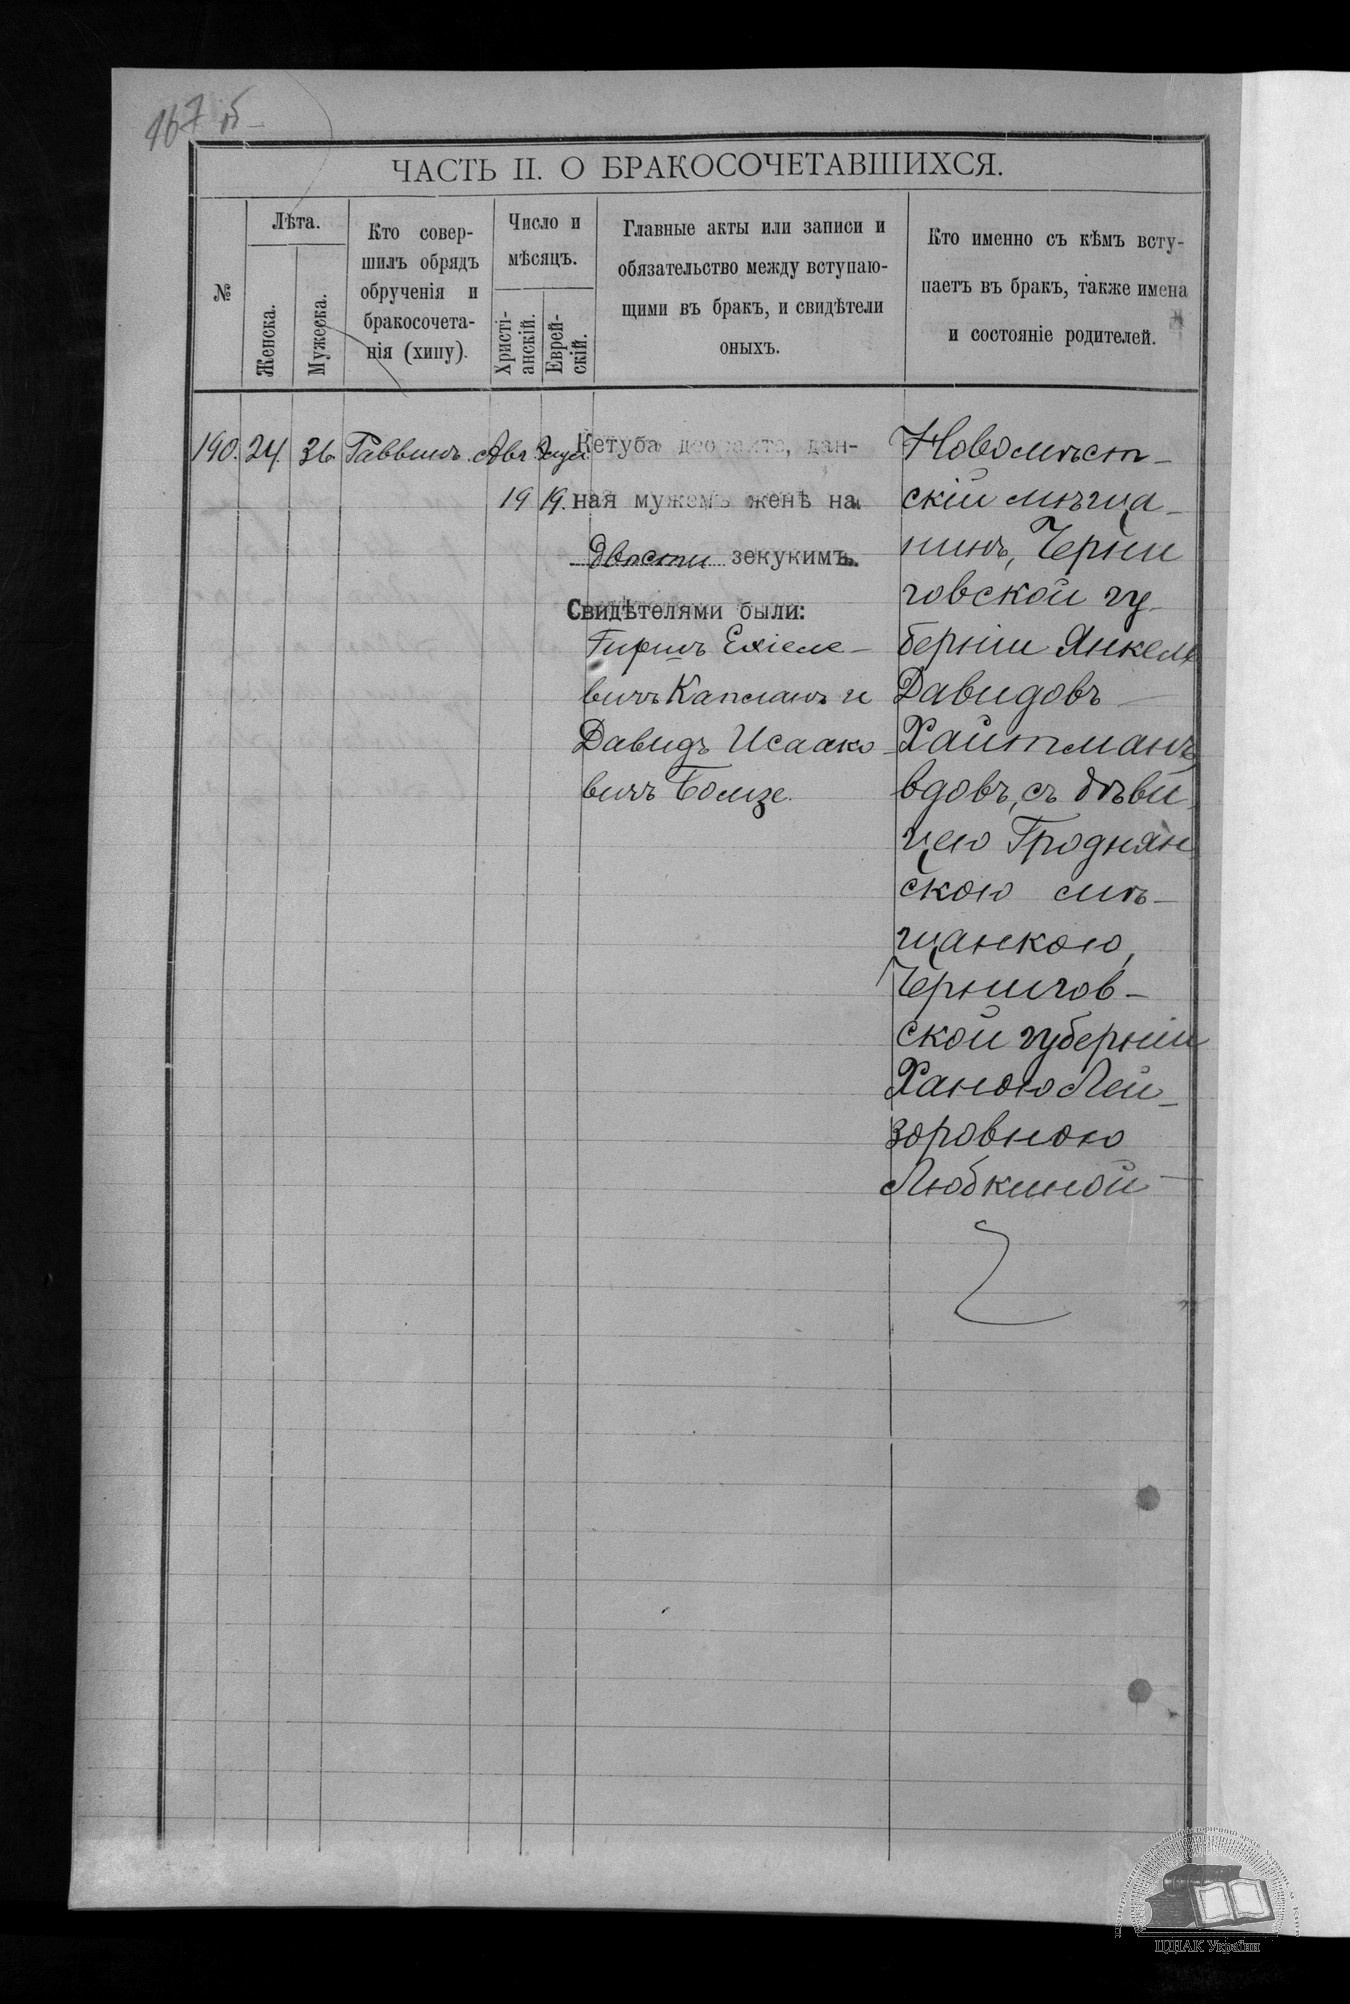 167 б
ЧАСТЬ II. О БРАКОСОЧЕТАВШИХСЯ.
№
Лѣта.
Женска.
Мужеска.
Кто совер-
шилъ обрядъ
обрученія и
бракосочета-
нія (хипу).
Число и
мѣсяцъ.
Христі-
анскій.
Еврей-
скій.
Главные акты или записи и
обязательство между вступаю-
щими въ бракъ, и свидѣтели
оныхъ.
Кто именно съ кѣмъ всту-
паетъ въ бракъ, также имена
и состояніе родителей.
190. 24. 36 Раввинъ. Авг. Элул
19 19.
Кетуба деораита, дан-
ная мужемъ женѣ на
двѣсти зекукимъ.
Свидѣтелями были:
Гиршъ Ехіеле-
вичъ Капланъ и
Давидъ Исаако-
вичъ Бомзе.
Новомѣст-
скій мѣща-
нинъ, Черни
говской гу-
берніи Янкель
Давидовъ
Хайтманъ,
вдовъ, съ дѣви
цею Гроднян
скою мѣ-
щанкою,
Чернигов-
ской губерніи
Ханою Лей-
зоровною
Любкиной
ЦДІАК України